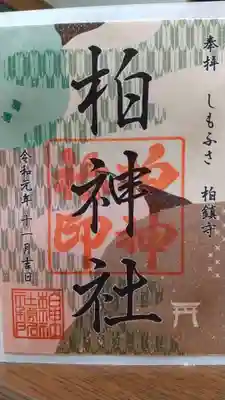 奉拝 しもふさ 柏鎮守
柏神社
柏神社印
令和元年十一月吉日